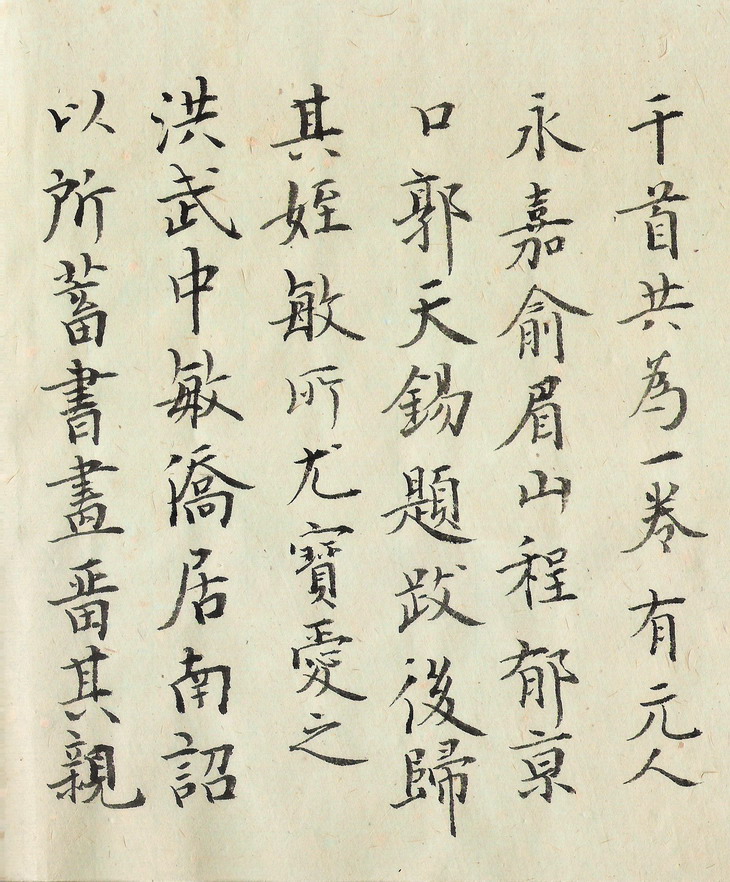 千首共為一卷有元人
永嘉俞眉山程郁京
口郭天錫題跋後歸
其姪敏所尤寶愛之
洪武中敏僑居南詔
以所蓄書畫畱其親